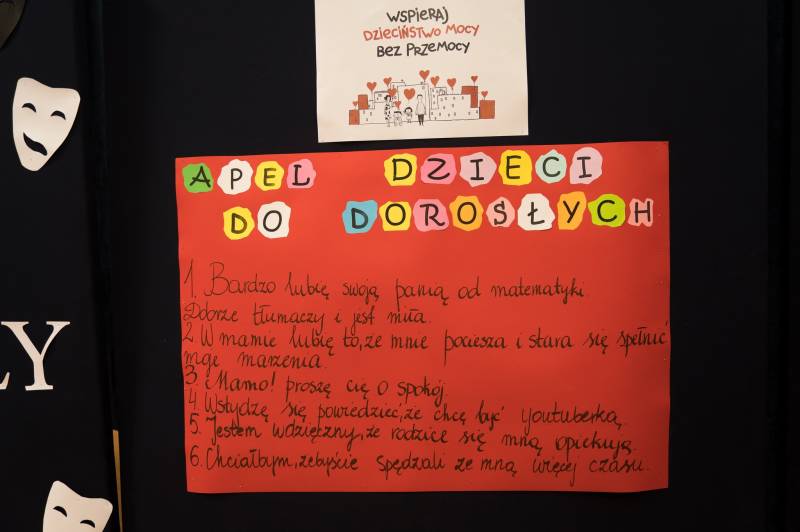 WSPIERAJ
DZIECIŃSTWO MOCY
BEZ PRZEMOCY
APEL DZIECI
DO DOROSŁYCH
1. Bardzo lubię swoją panią od matematyki.
Dobrze tłumaczy i jest miła.
2. W mamie lubię to, że mnie pociesza i stara się spełnić
moje marzenia.
3. Mamo! proszę cię o spokój.
4. Wstydzę się powiedzieć, że chcę być youtuberką.
5. Jestem wdzięczny, że rodzice się mną opiekują.
6. Chciałbym, żebyście spędzali ze mną więcej czasu.
LY